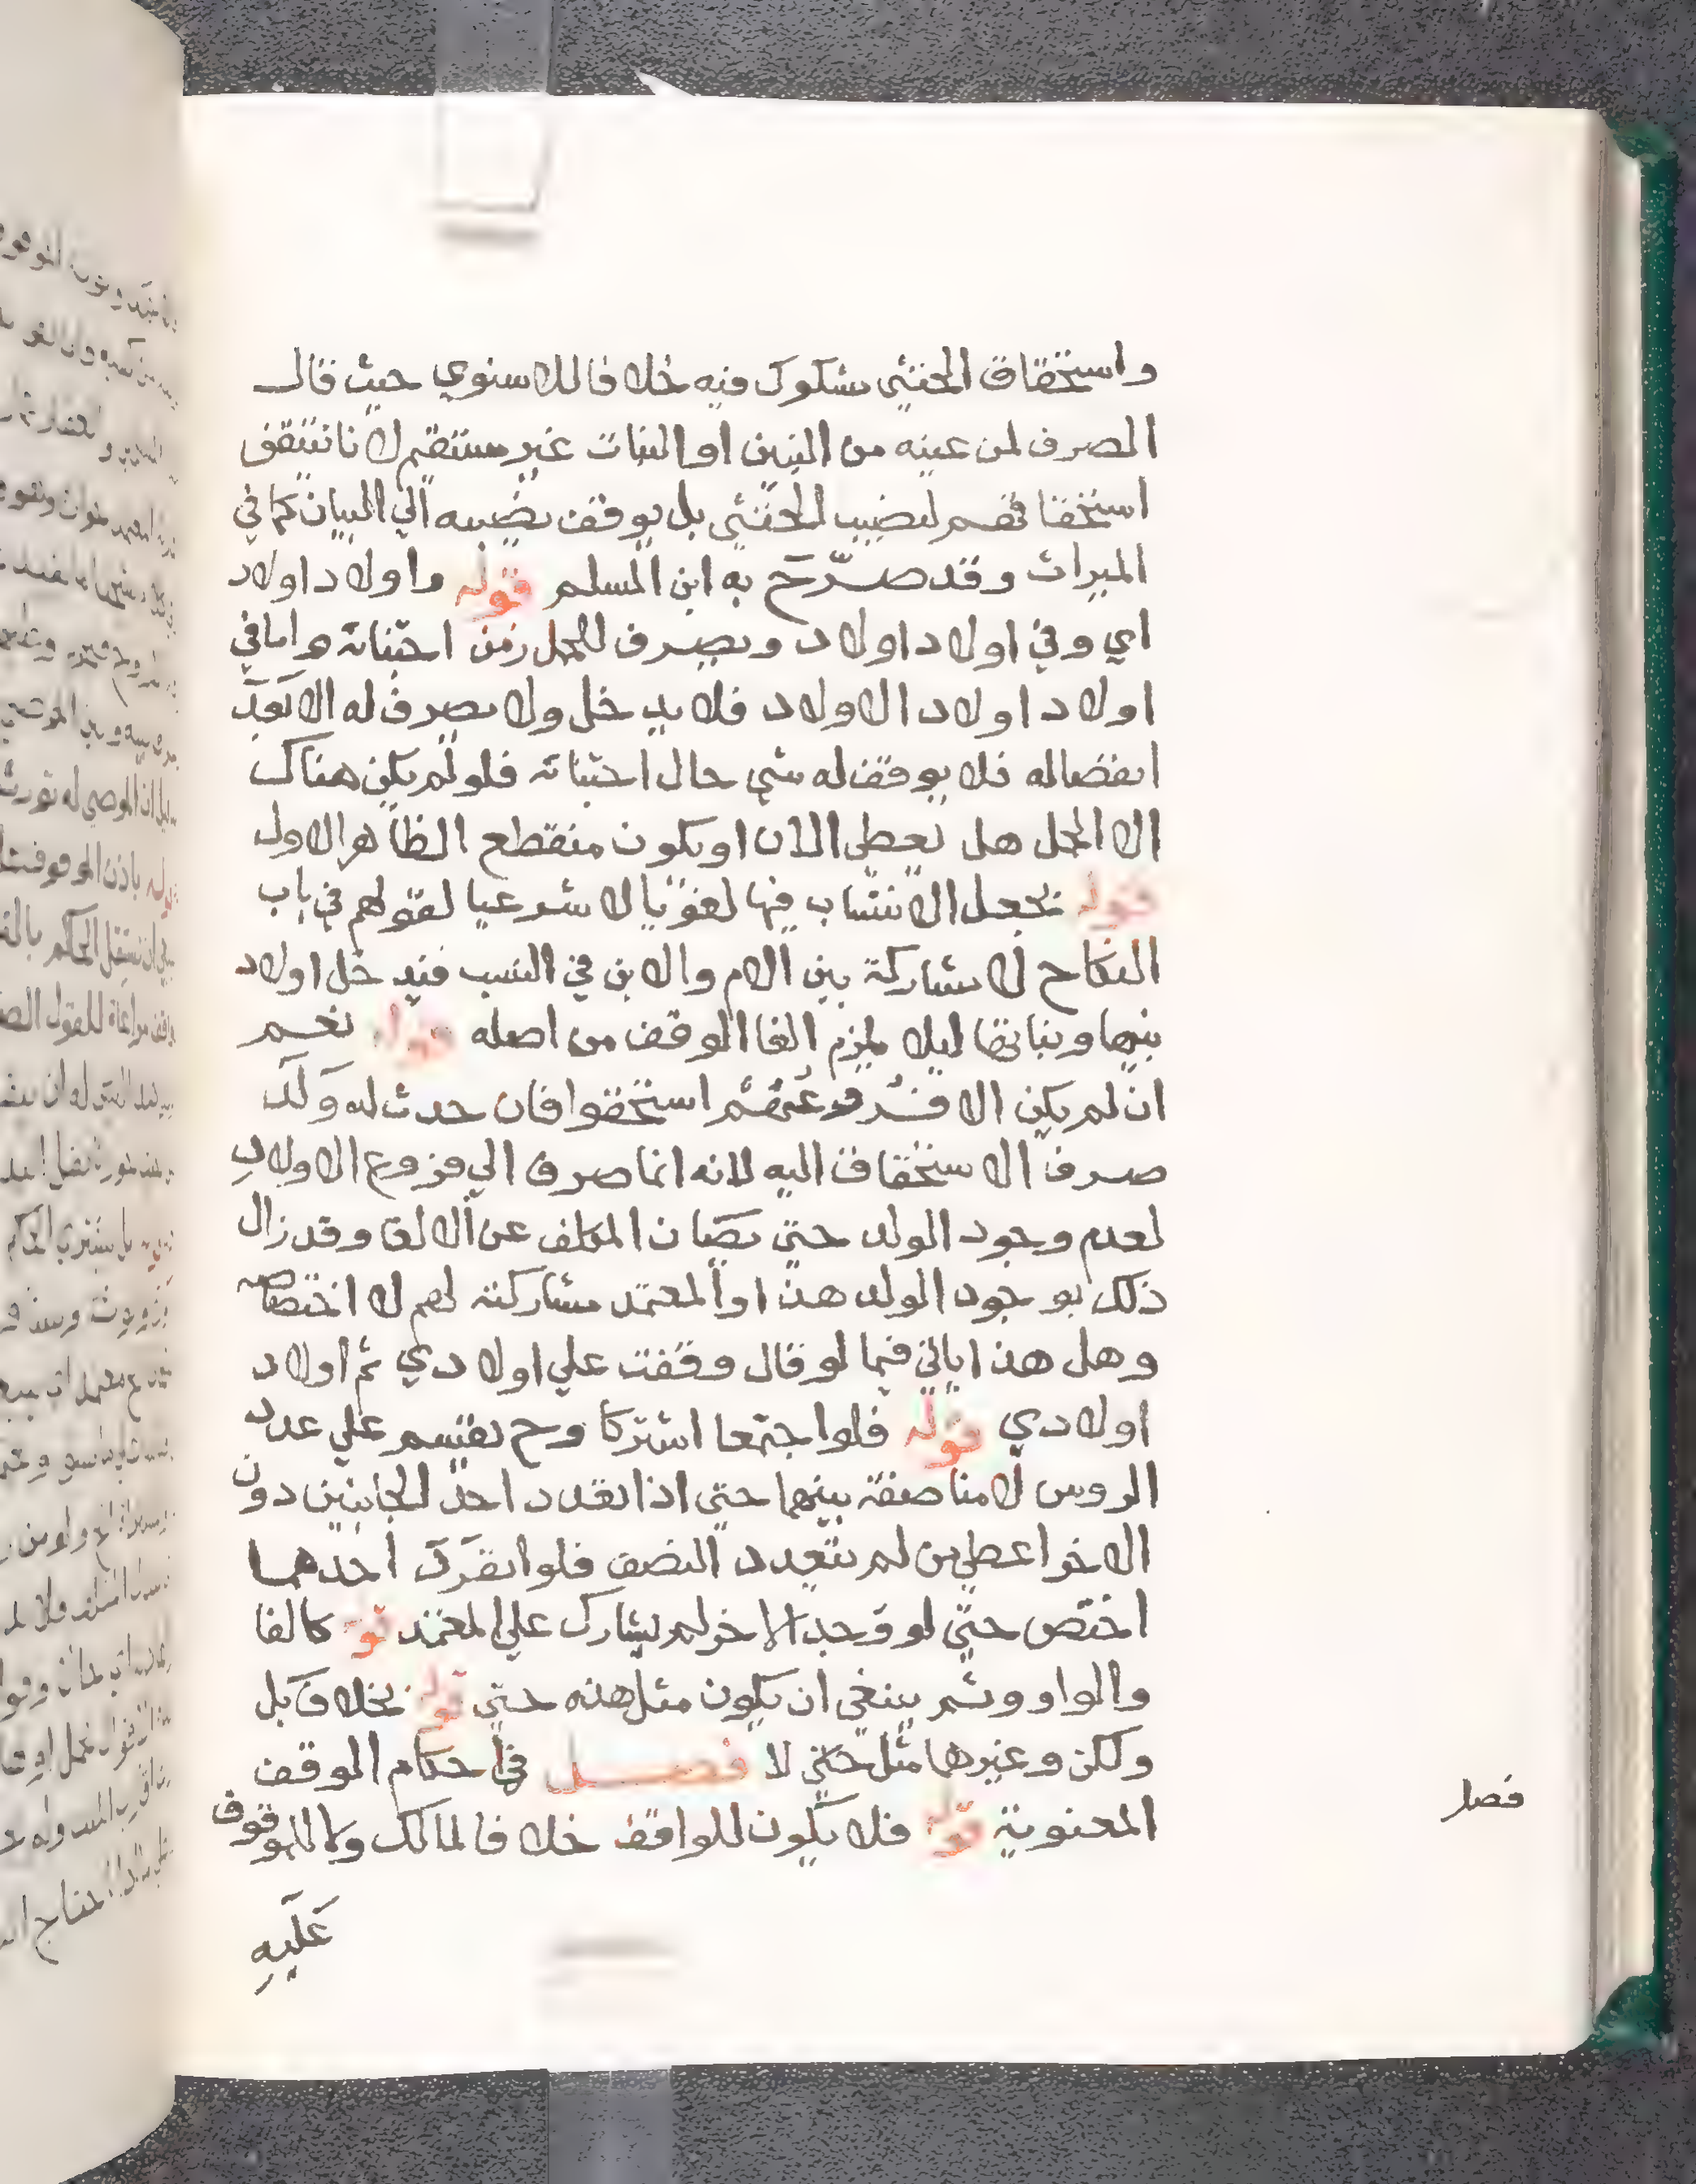 واستحقاق الخنثي مشكوك فيه خلافا للاسنوي حيث قال
المصرف لمن عينه من البنين او البنات غير مستقيم لانا نتيقن
استحقاقهم لنصيب الخنثي بل يوقف نصيبه الي البيان كما في
الميراث وقد صرح به ابن المسلم قوله واولاد اولاد
اي وفي اولاد اولاد ويصرف للحمل زمن اجتنانه واما في
اولاد اولاد الاولاد فلا يدخل ولا يصرف له الا بعد
انفصاله فلا يوقف له شي حال اجتنانه فلو لم يكن هناك
الا الحمل هل يعطي الان او يكون منقطع الظاهر الاول
قوله يجعل الانتساب فيها لغويا لا شرعيا لقولهم في باب
النكاح لا مشاركة بين الام والابن في النسب فيدخل اولاد
بنيها وبناتها ليلا يلزم الغا الوقف من اصله قوله نعم
ان لم يكن الا فروعهم استحقوا فان حدث له ولد
صرف الاستحقاق اليه لانه انما صرف الي فروع الاولاد
لعدم وجود الولد حتي يصان المكلف عن الالغا وقد زال
ذلك بوجود الولد هذا والمعتمد مشاركته لهم لا اختصاصه
وهل هذا ياتي فيما لو قال وقفت علي اولادي ثم اولاد
اولادي قوله فلو اجتمعا اشتركا وح يقتسم علي عدد
الروس لا مناصفة بينهما حتي اذا تعدد احد الجانبين دون
الاخر اعطي من لم يتعدد النصف فلو انفرد احدهما
اختص حتي لو وجد الاخر لم يشارك علي المعتمد قوله كالفا
والواو وثم ينبغي ان يكون مثل هذه حتي قوله بخلاف بل
ولكن وغيرها مثل حتي لا فصل في احكام الوقف
المعنوية قوله فلا يكون للواقف خلافا لمالك ولا للموقوف
عليه
فصل